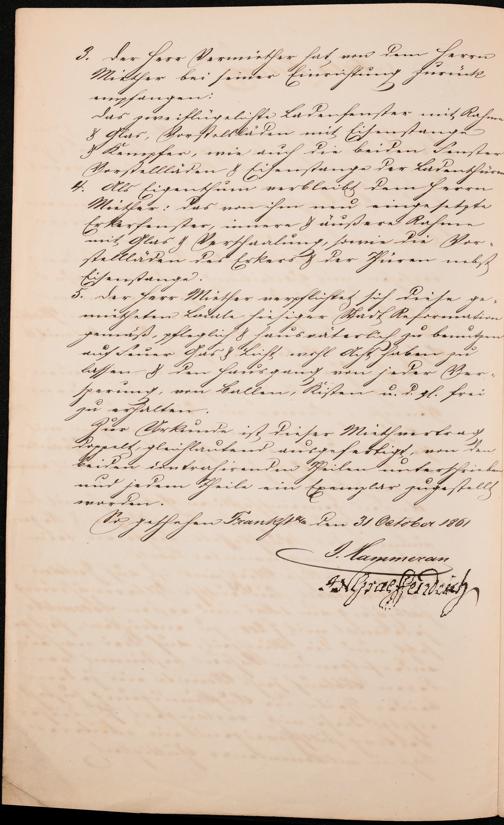 3. Der Herr Vermiether hat von dem Herrn
Miether bei seiner Einrichtung zurück
empfangen:
das zweiflügelichte Ladenfenster mit Rahm
& Glas, Vorstellläden mit Eisenstange
& Kempfer, wie auch die beiden Fenster
Vorstellläden & Eisenstange der Ladenthüren
4. Als Eigenthum verbleibt dem Herrn
Miether: das von ihm neu eingesetzte
Erkerfenster, innere & äußere Rahme
mit Glas & Verschaalung, sowie die Vor-
stellläden des Erkers & der Thüren nebst
Eisenstange.
5. Der Herr Miether verpflichtet sich diese ge-
mietheten Lokale hiesiger Stadt Reformation
gemäß, pfleglich & hausväterlich zu benutzen
auf Feuer Gas & Licht wohl Acht haben zu
lassen & den Hausgang von jeder Ver-
sperrung, von Ballen, Kisten u. d. gl. frei
zu erhalten.
Zur Urkunde ist dieser Miethvertrag
doppelt gleichlautend ausgefertigt, von den
beiden contrahirenden Theilen unterschrieben
und jedem Theile ein Exemplar zugestellt
worden.
So geschehen Frankft a/m den 31 October 1861
J. Hammeran
Graeffendeich